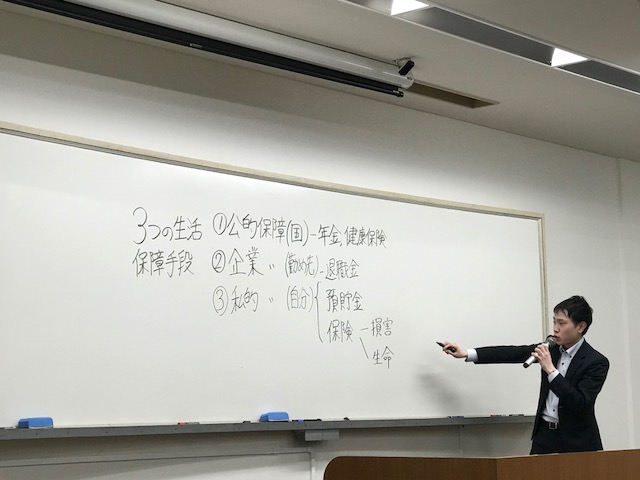 3つの生活 ①公的保障(国)-年金,健康保険
保障手段 ②企業 〃 (勤め先)-退職金
③私的 〃 (自分){預貯金
保険-損害
\生命